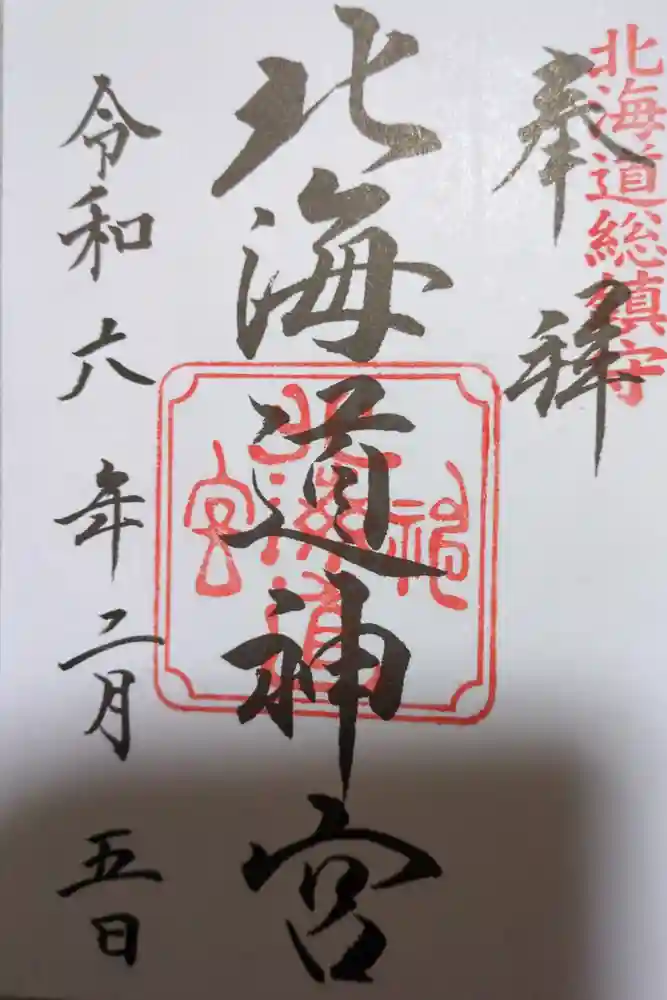 北海道総鎮守
奉拝
北海道神宮
令和六年二月五日
北海道神宮